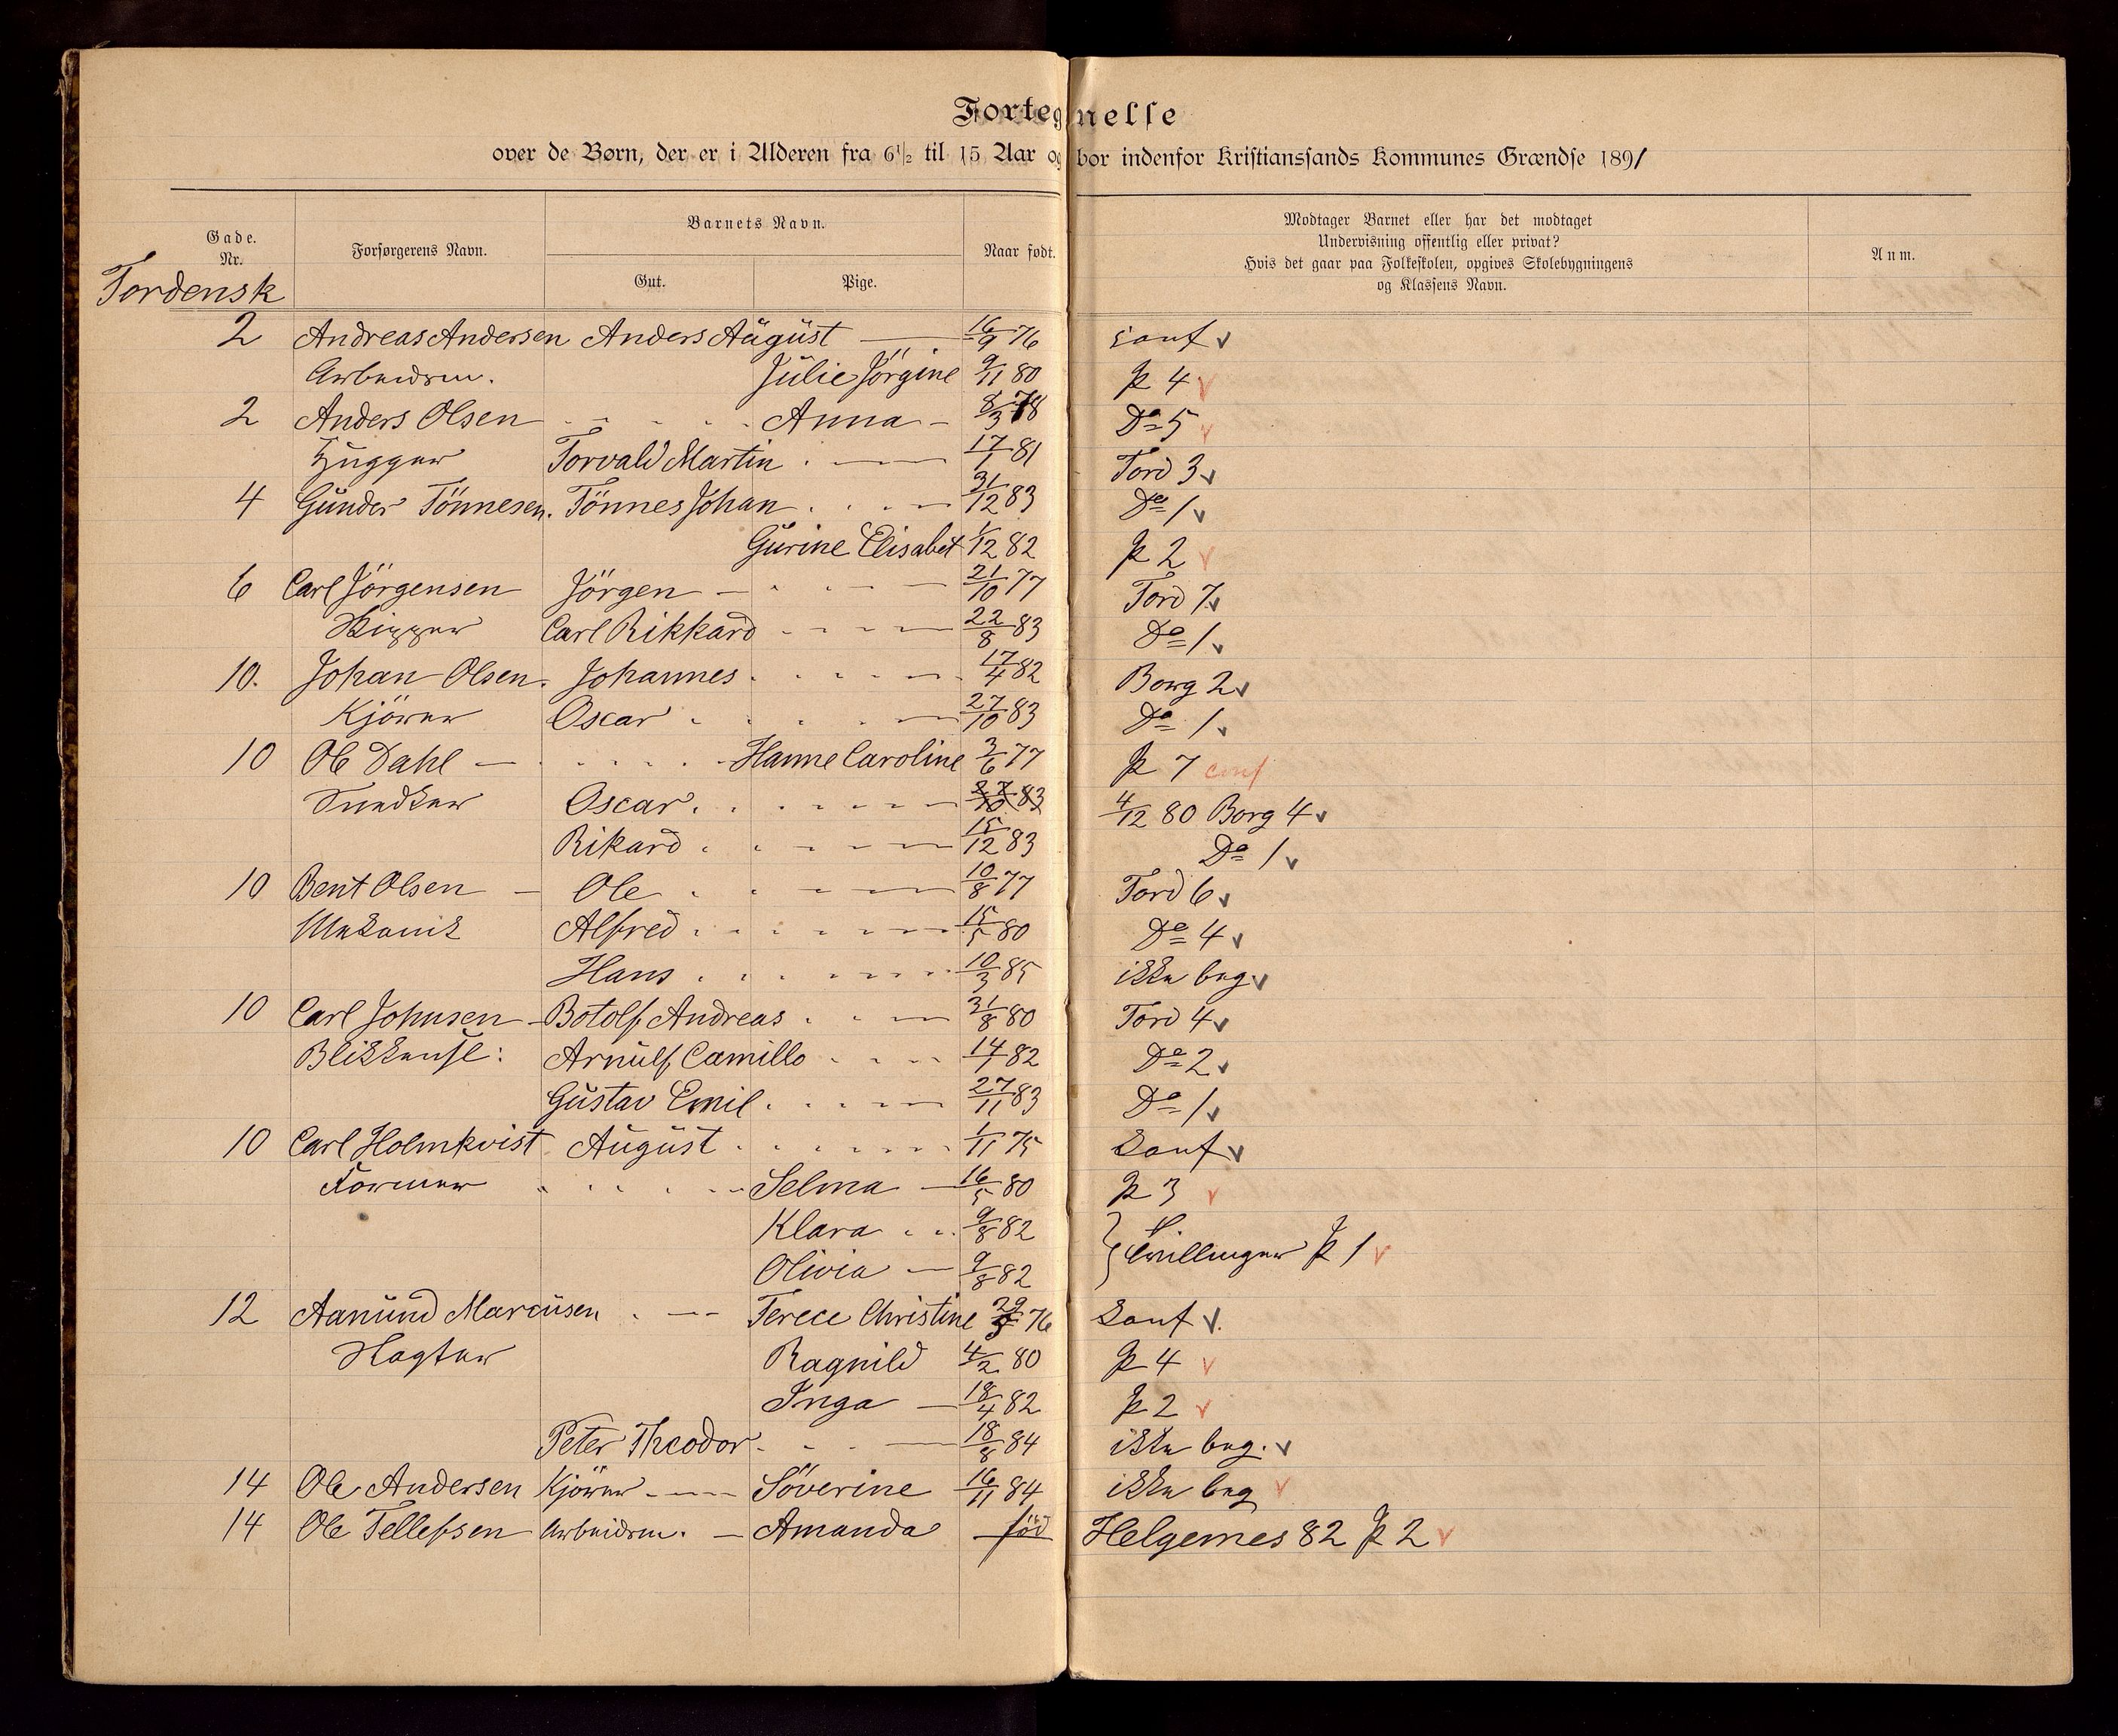 Fortegnelse
over de Børn, der er i Alderen fra 6½ til 15 Aar og bor indenfor Kristianssands Kommunes Grændse 1891
Gade. Nr. Forsørgerens Navn. Barnets Navn. Gut. Pige. Naar født. Modtager Barnet eller har det modtaget Undervisning offentlig eller privat? Hvis det gaar paa Folkeskolen, opgives Skolebygningens og Klassens Navn. Anm.
Tordensk
2 Andreas Andersen Anders August 16/9 76 conf v
Arbeidsm. Julie Jörgine 9/11 80 P 4 v
2 Anders Olsen Anna 8/3 78 Do 5 v
Hugger Torvald Martin 17/1 81 Tord 3 v
4 Gunder Tönnesen. Tönnes Johan 31/12 83 Do 1 v
Gurine Elisabet 1/12 82 P 2 v
6 Carl Jörgensen Jörgen 21/10 77 Tord 7 v
Rigger Carl Rikkard 22/8 83 Do 1 v
10. Johan Olsen. Johannes 17/4 82 Borg 2 v
Kjörer Oscar 27/10 83 Do 1 v
10 Ole Dahl Hanne Caroline 3/6 77 P 7 conf
Snedker Oscar 27/10 83 4/12 80 Borg 4 v
Rikard 15/12 83 Do 1 v
10 Bent Olsen Ole 10/8 77 Tord 6 v
Mekanik Alfred 15/5 80 Do 4 v
Hans 10/3 85 ikke beg v
10 Carl Johnsen Botolf Andreas 31/8 80 Tord 4 v
Blikkensl: Arnulf Camillo 14/1 82 Do 2 v
Gustav Emil 27/11 83 Do 1 v
10 Carl Holmkvist August 1/11 75 Conf v
Former Selma 16/5 80 P 3 v
Klara 9/8 82
Tvillinger P 1 v
Olivia 9/8 82
12 Aanund Marcusen Terece Christine 76 Conf v.
Hegter Ragnild 4/2 80 P 4 v
Inga 18/4 82 P 2 v
Peter Theodor 18/8 84 ikke beg. v
14 Ole Andersen Kjörer Söverine 16/11 84 ikke beg v
14 Ole Tellefsen Arbeidsm. Amanda föd Helgernes 82 P 2 v